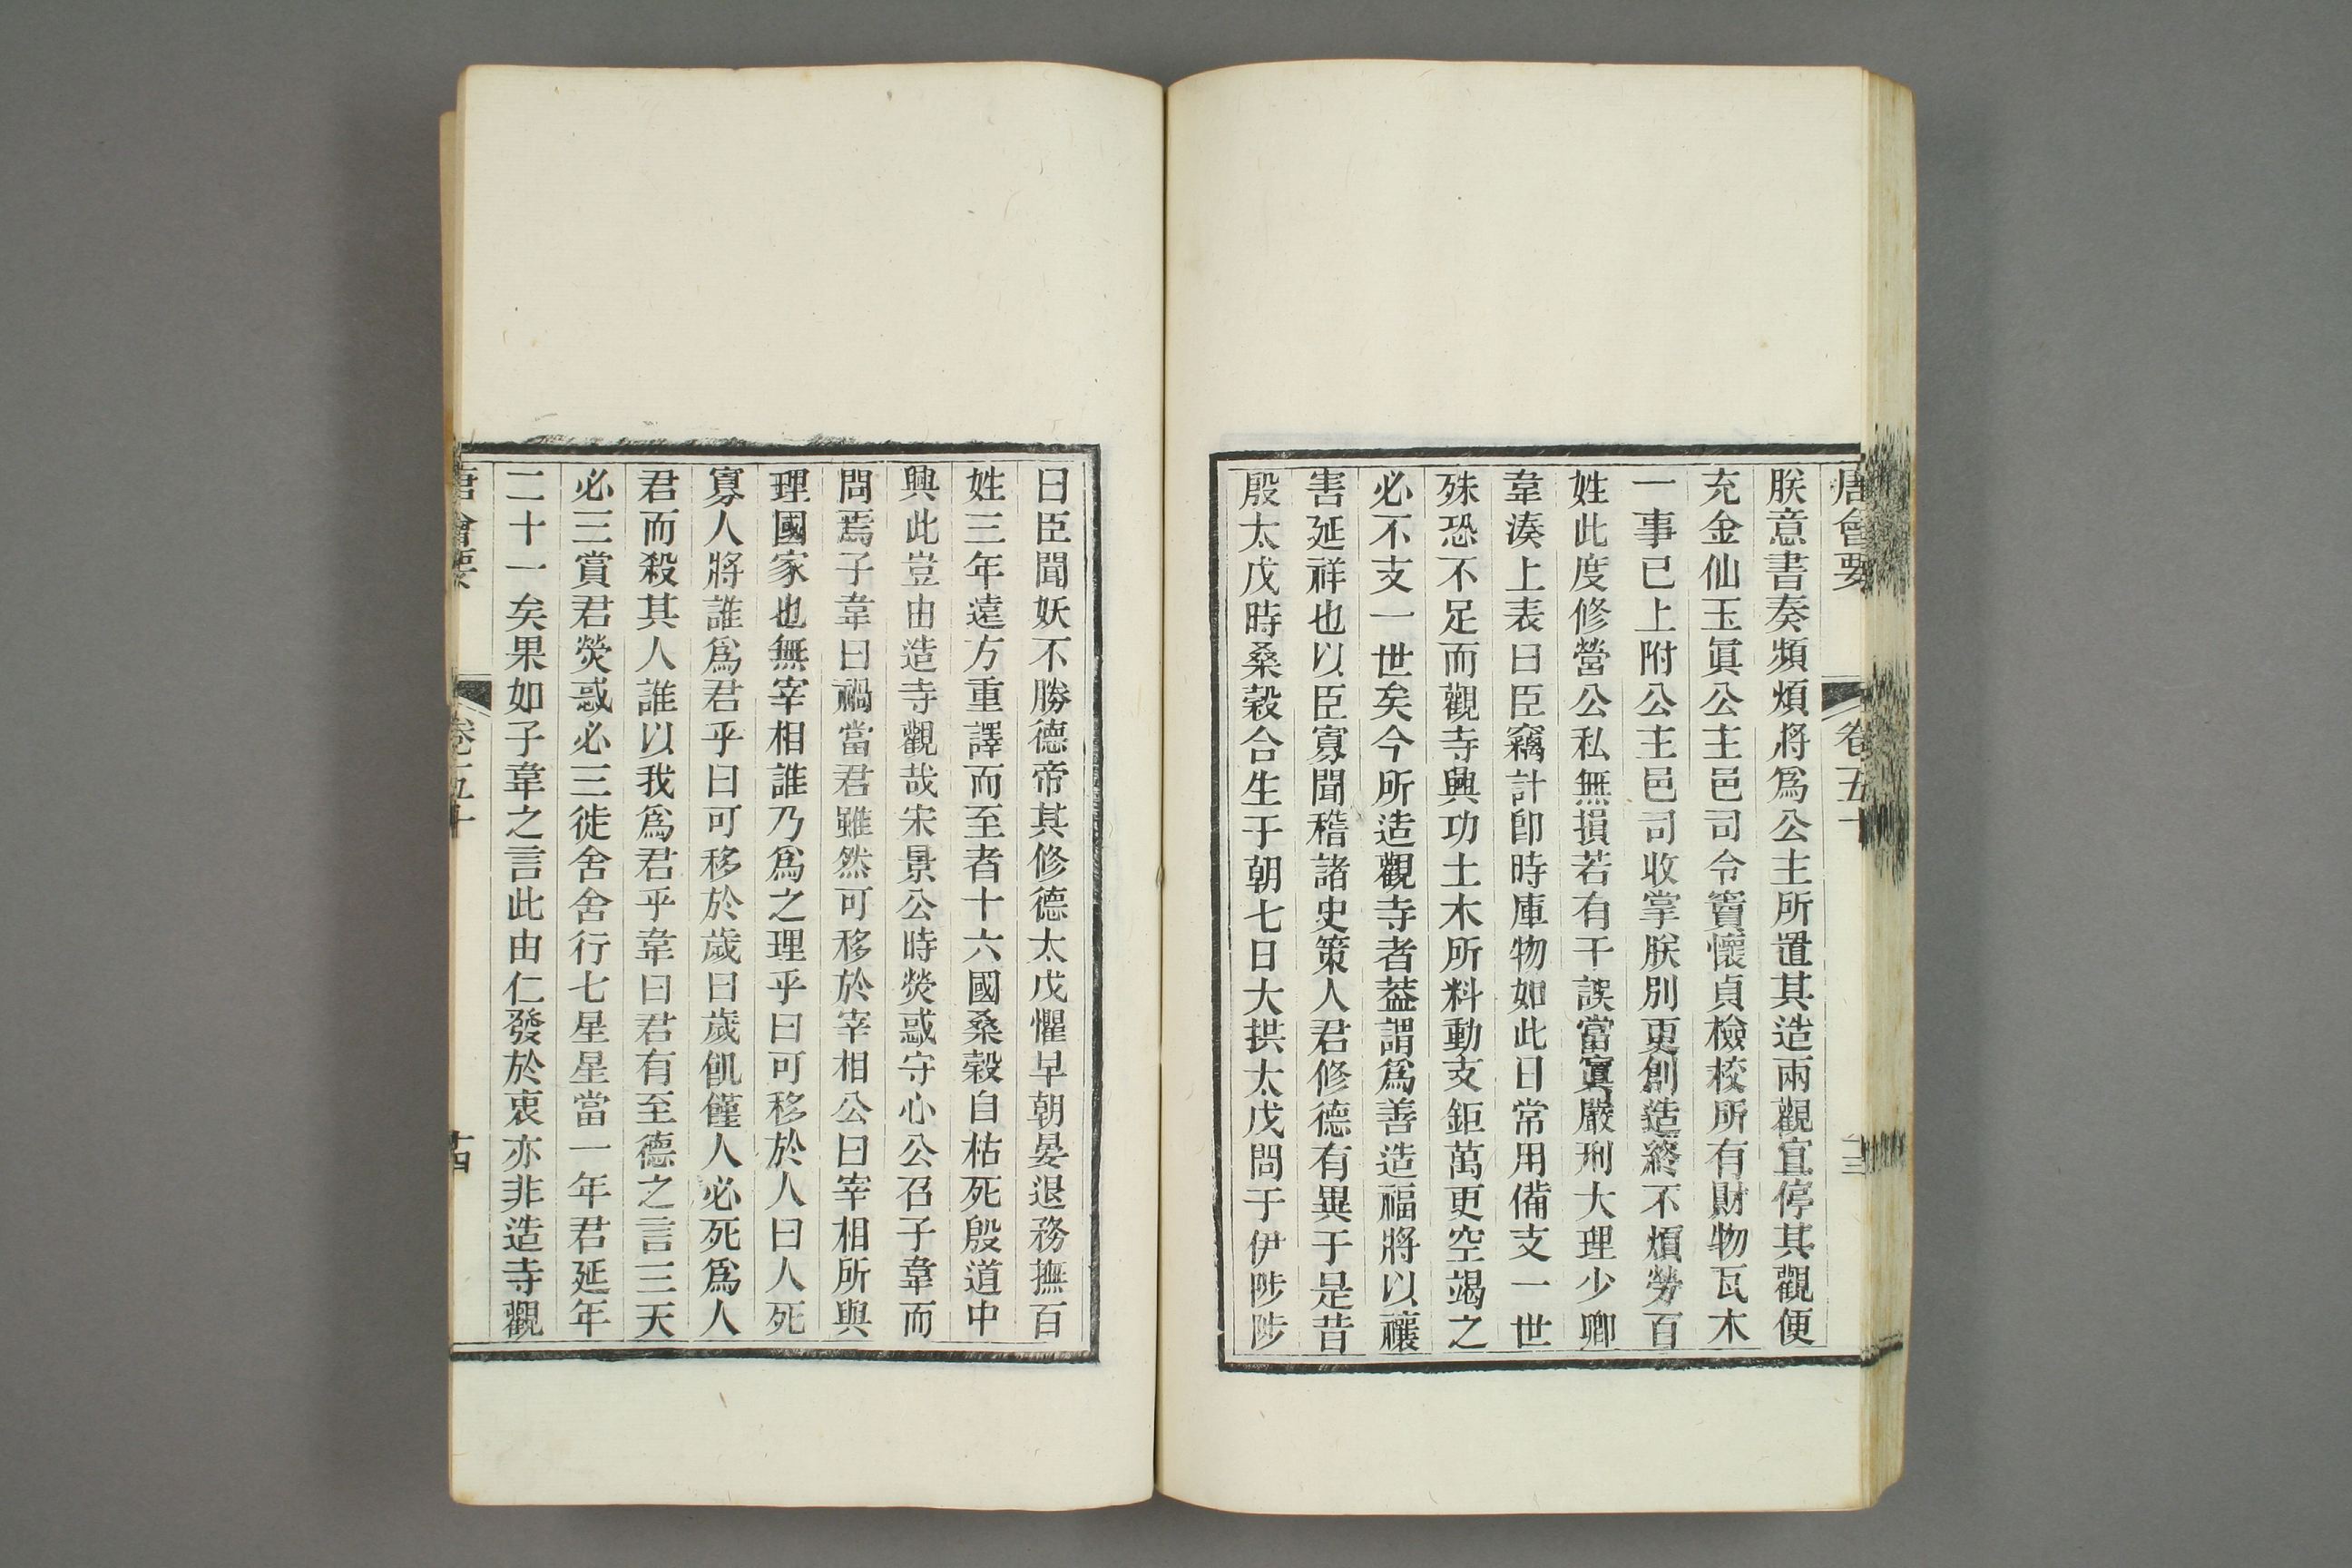 唐會要 卷五十 十三
朕意書奏頻煩將爲公主所置其造兩觀宜停其觀便
充金仙玉眞公主邑司令竇懷貞檢校所有財物瓦木
一事已上附公主邑司收掌朕別更創造終不煩勞百
姓此度修營公私無損若有干誤當寘嚴刑大理少卿
韋湊上表曰臣竊計卽時庫物如此日常用備支一世
殊恐不足而觀寺興功土木所料動支鉅萬更空竭之
必不支一世矣今所造觀寺者葢謂爲善造福將以禳
害延祥也以臣寡聞稽諸史策人君修德有異于是昔
殷太戊時桑穀合生于朝七日大拱太戊問于伊陟陟
曰臣聞妖不勝德帝其修德太戊懼早朝晏退務撫百
姓三年遠方重譯而至者十六國桑穀自枯死殷道中
興此豈由造寺觀哉宋景公時熒惑守心公召子韋而
問焉子韋曰禍當君雖然可移於宰相公曰宰相所與
理國家也無宰相誰乃爲之理乎曰可移於人曰人死
寡人將誰爲君乎曰可移於歲曰歲飢饉人必死爲人
君而殺其人誰以我爲君乎韋曰君有至德之言三天
必三賞君熒惑必三徙舍舍行七星星當一年君延年
二十一矣果如子韋之言此由仁發於衷亦非造寺觀
唐會要 卷五十 十四